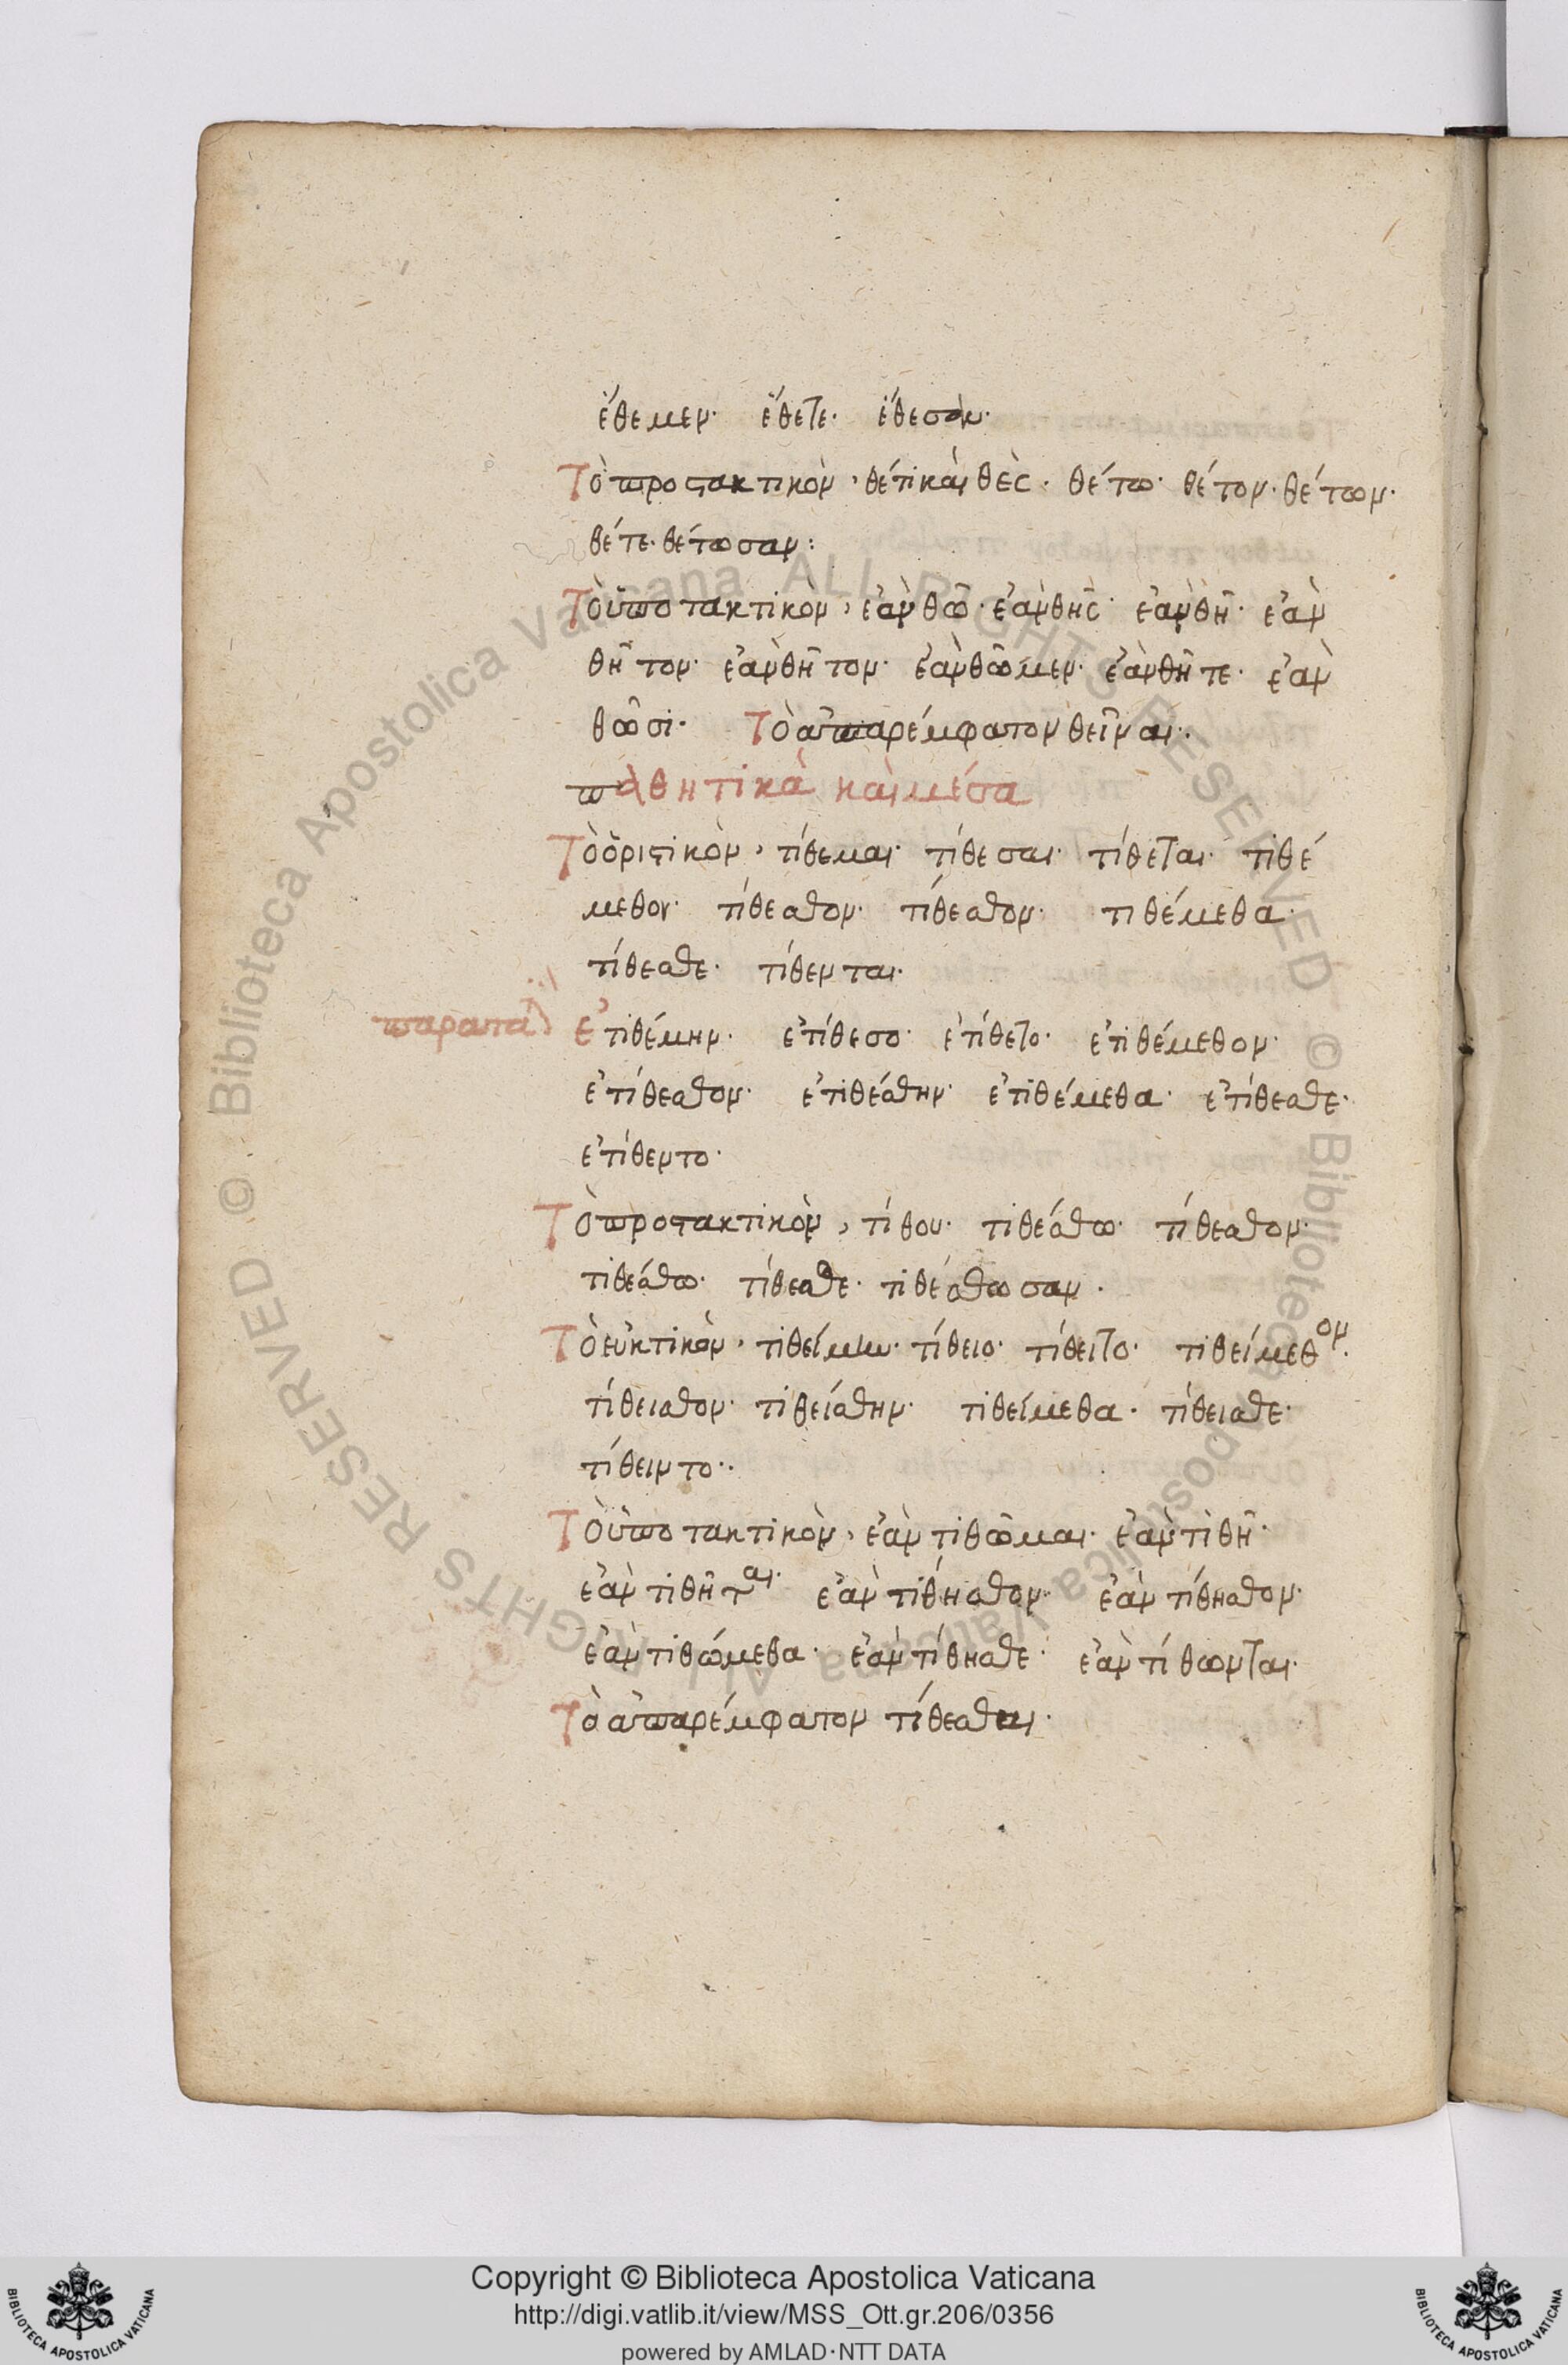 ἔθεμεν· ἔθετε· ἔθεσαν·
Τὸ προστακτικὸν, θέτι καὶ θὲς· θέτω· θέτον· θέτων·
θέτε· θέτωσαν:
Τὸ ὑποτακτικὸν, ἐὰν θῶ· ἐὰν θῆς· ἐὰν θῆ· ἐὰν
θῆτον· ἐὰν θῆτον· ἐὰν θῶμεν· ἐὰν θῆτε· ἐὰν
θῶσι· Τὸ ἀπαρέμφατον θεῖναι:
παθητικὰ καὶ μέσα
Τὸ ὁριστικὸν, τίθεμαι· τίθεσαι· τίθεται· τιθέ
μεθον· τίθεσθον· τίθεσθον· τιθέμεθα·
τίθεσθε· τίθενται·
παρατα ἐτιθέμην· ἐτίθεσο· ἐτίθετο· ἐτιθέμεθον·
ἐτίθεσθον· ἐτιθέσθην· ἐτιθέμεθα· ἐτίθεσθε·
ἐτίθεντο·
Τὸ προστακτικὸν, τίθου· τιθέσθω· τίθεσθον·
τιθέσθω· τίθεσθε· τιθέσθωσαν·
Τὸ εὐκτικὸν, τιθείμην· τίθειο· τίθειτο· τιθείμεθον·
τίθεισθον· τιθείσθην· τιθείμεθα· τίθεισθε·
τίθειντο··
Τὸ ὑποτακτικὸν, ἐὰν τιθῶμαι· ἐὰν τιθῆ·
ἐὰν τιθῆται· ἐὰν τίθησθον· ἐὰν τίθησθον·
ἐὰν τιθώμεθα· ἐὰν τίθησθε· ἐὰν τίθωνται·
Τὸ ἀπαρέμφατον τίθεσθαι·
© Biblioteca Apostolica Vaticana ALL RIGHTS RESERVED © Biblioteca Apostolica Vaticana ALL RIGHTS RESERVED
Copyright © Biblioteca Apostolica Vaticana
http://digi.vatlib.it/view/MSS_Ott.gr.206/0356
powered by AMLAD·NTT DATA
BIBLIOTECA APOSTOLICA VATICANA
BIBLIOTECA APOSTOLICA VATICANA